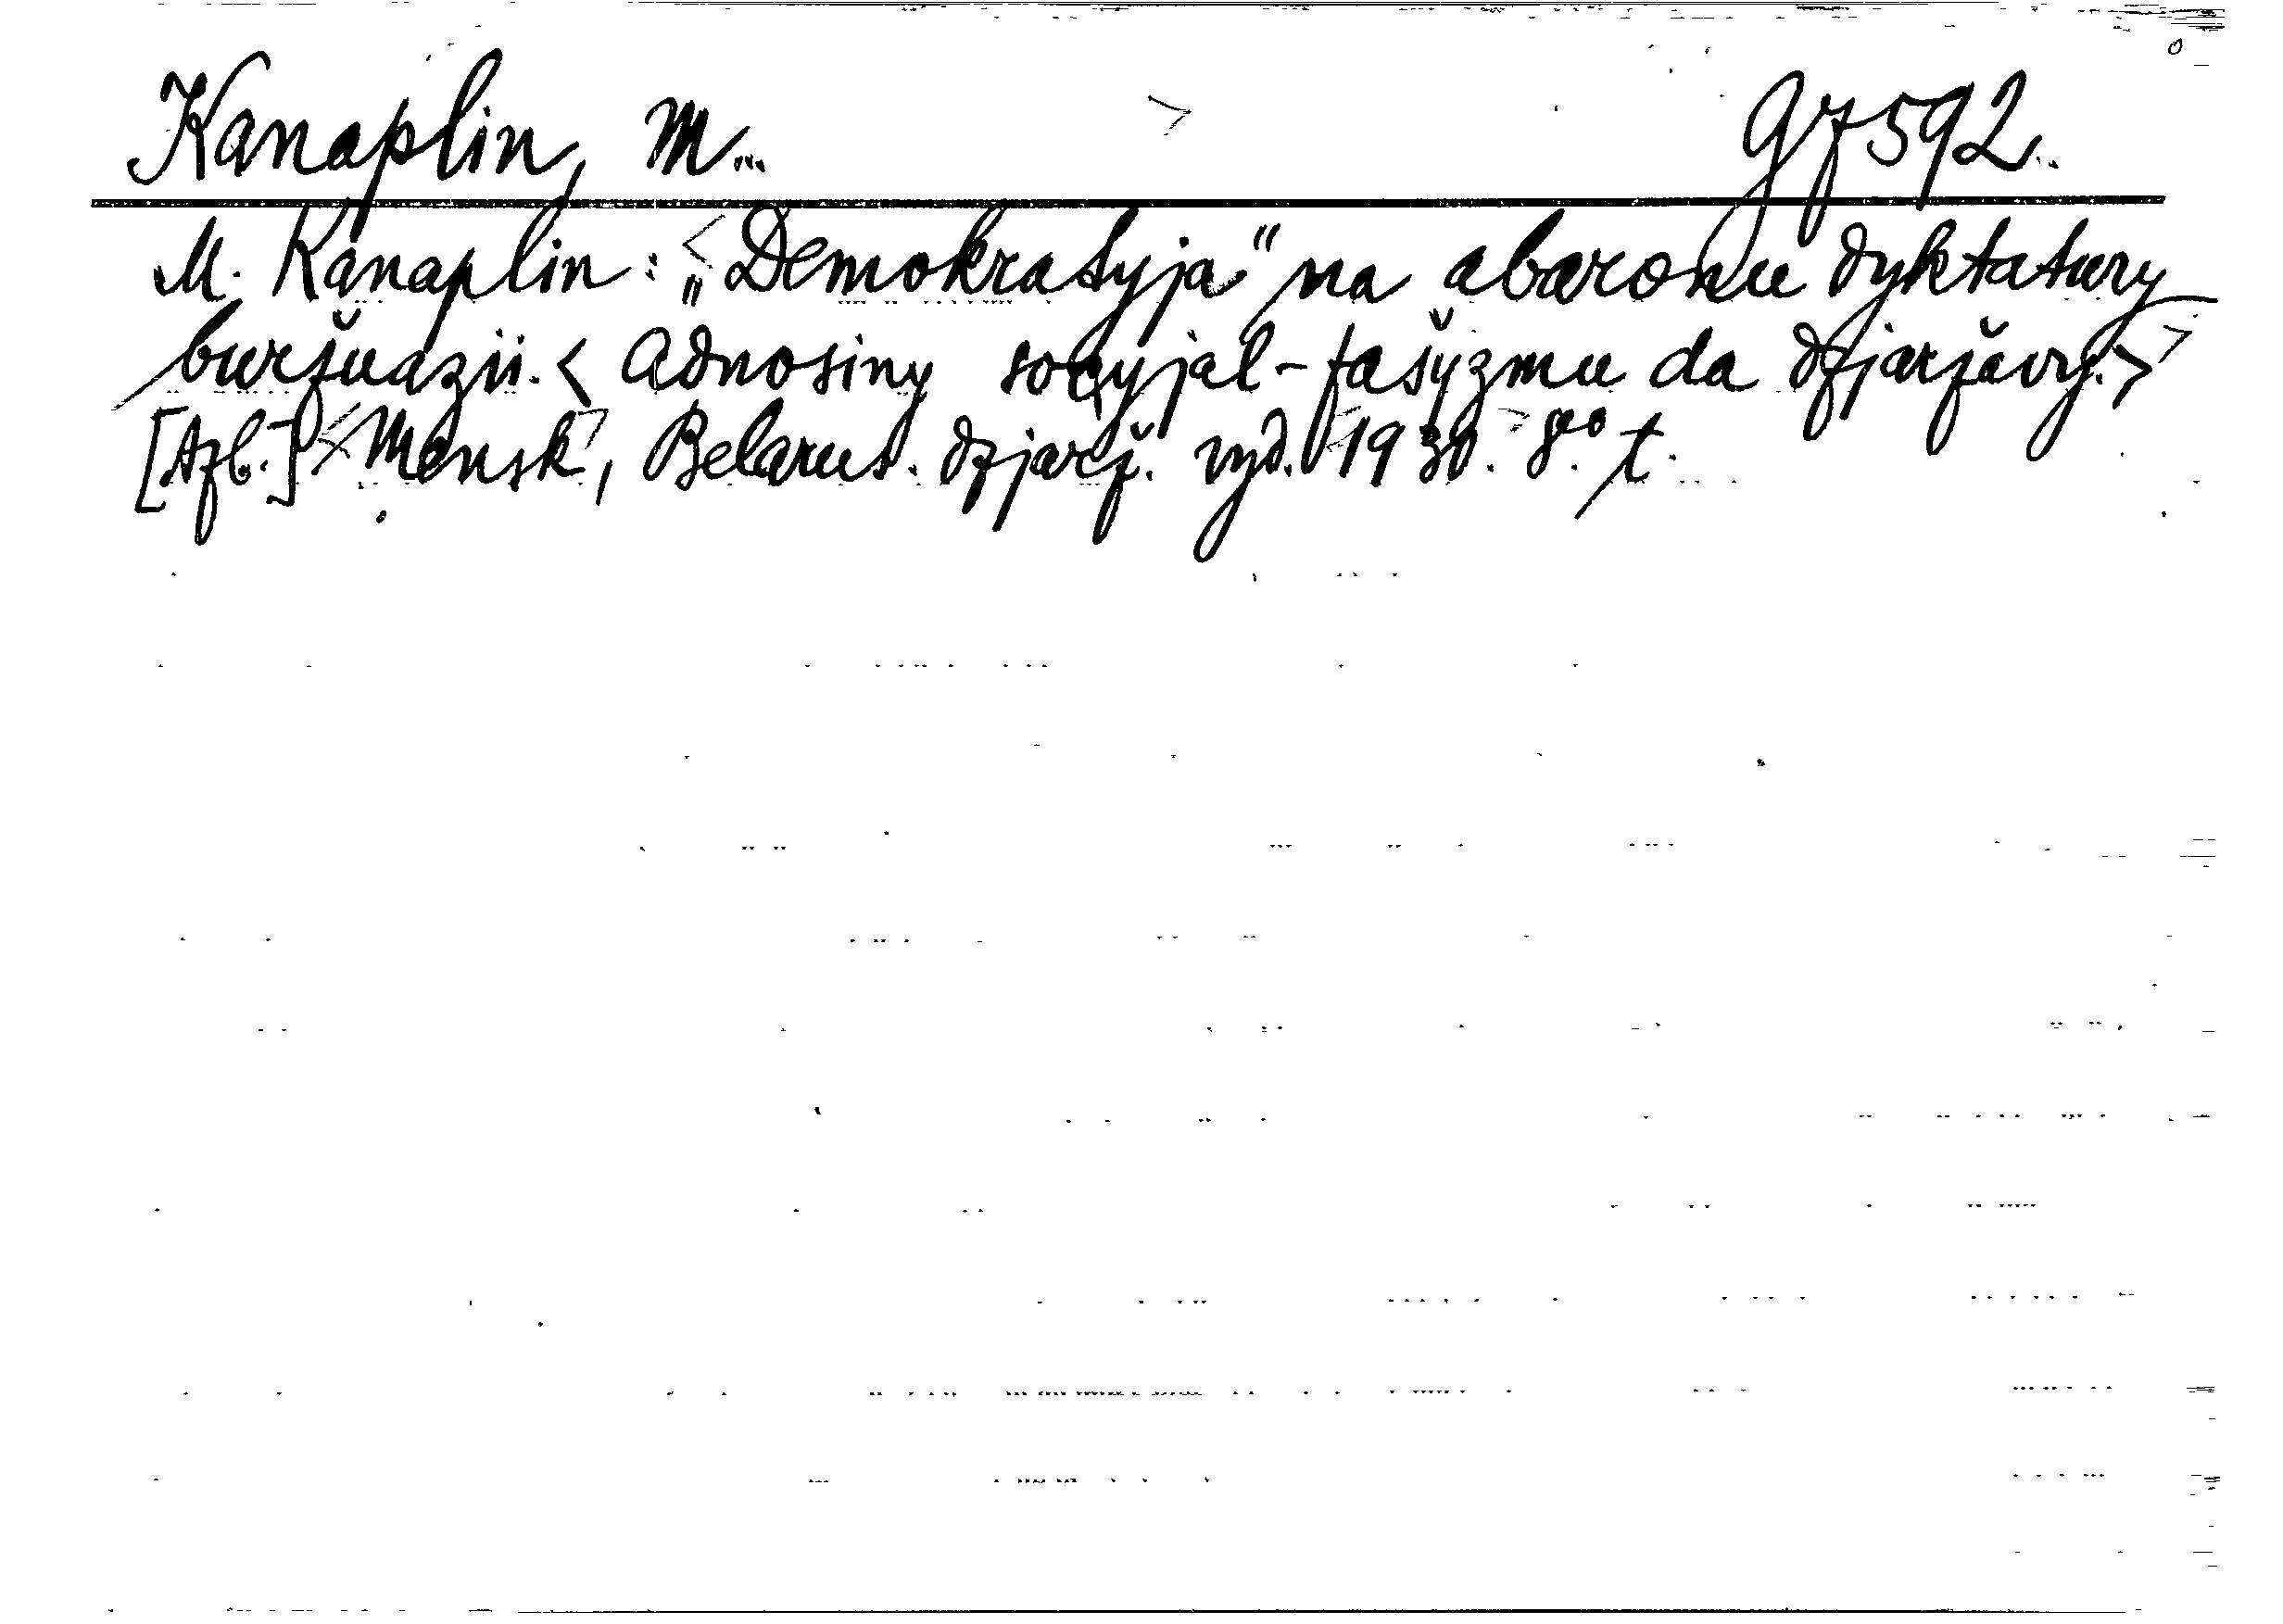 Kanaplin, M... 97592.
M. Kanaplin: „Demokratyja“ na abaronu dyktatury
buržuazii. < Adnosiny socyjal-fašyzmu da dzjaržavy. >
[Azb.] <Mensk>, Belarus. dzjarž. vyd. <1930.> 8.° t.